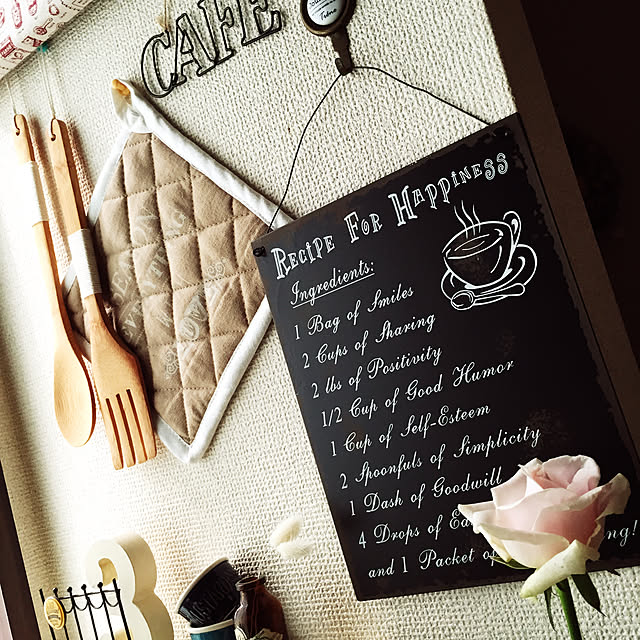 CAFE
Recipe For Happiness
Ingredients:
1 Bag of Smiles
2 Cups of Sharing
2 lbs of Positivity
1/2 Cup of Good Humor
1 Cup of Self-Esteem
2 Spoonfuls of Simplicity
1 Dash of Goodwill
4 Drops of
and 1 Packet of